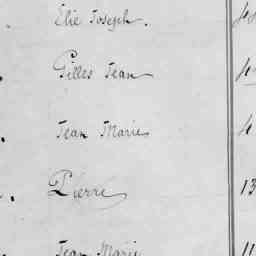 Elie Joseph.
Gilles Jean
Jean Marie
Pierre 13
Jean Marie 11